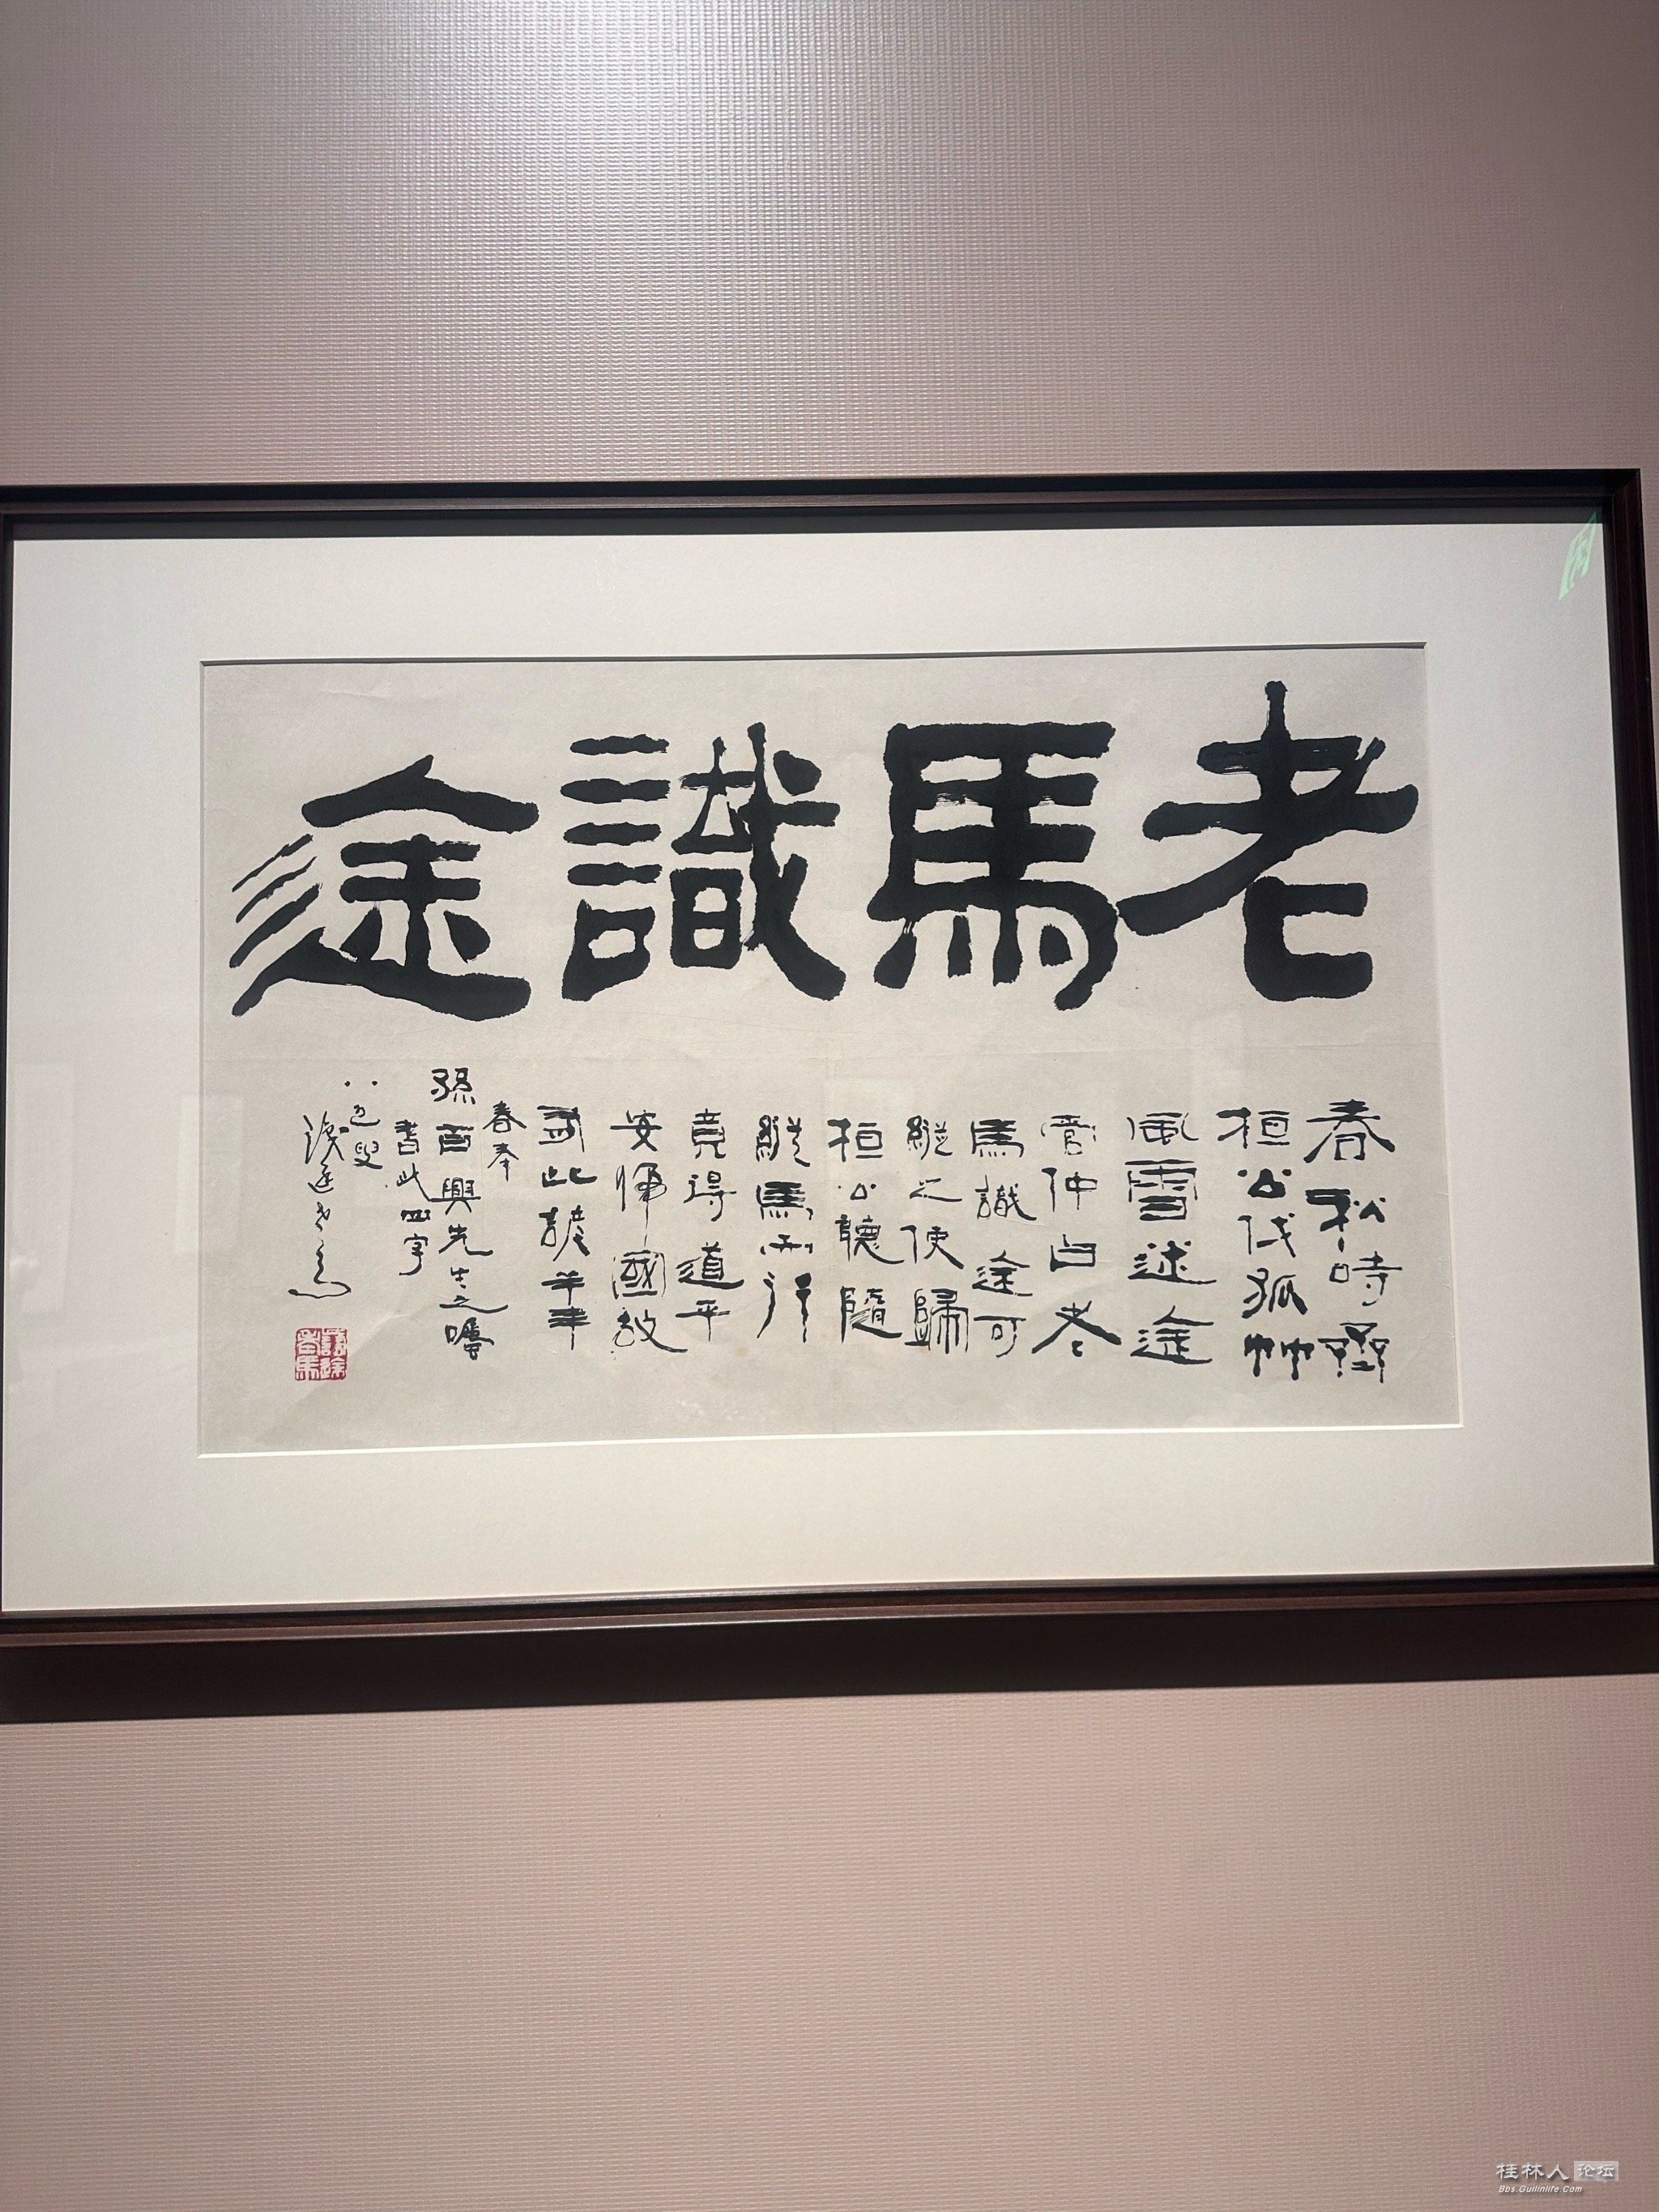 老馬識途
春秋時齊
桓公伐孤竹
風雪迷途
管仲曰老
馬識途可
縱之使歸
桓公聽隨
縱馬而行
竟得道平
安歸國故
有此諺羊年
春奉
孫百興先生之囑
書此四字
八五叟
識途老馬
識途老馬
桂林人论坛
Bbs.Guilinlife.Com